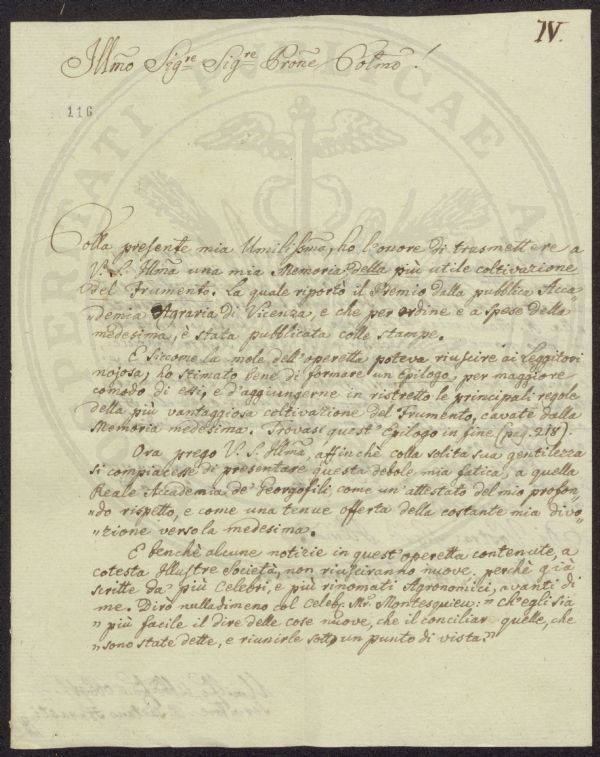 IV.
Illmõ Sigre Sigre Prõne Colmõ!
116
Colla presente mia Umilissima, ho l'onore di trasmettere a
V. S. Illmã una mia Memoria della più utile coltivazione
del Frumento. La quale riportò il Premio dalla pubblica Acca=
"demia Agraria di Vicenza, e che per ordine e a spese della
medesima, è stata pubblicata colle stampe.
E siccome la mole dell'operetta poteva riuscire ai Leggitori
nojosa, ho stimato bene di formare un Epilogo, per maggiore
comodo di essi, e d'aggiungerne in ristretto le principali regole
della più vantaggiosa coltivazione del Frumento, cavate dalla
Memoria medesima. Trovasi quest'Epilogo in fine (pag. 218).
Ora prego V. S. Illmã, affinchè colla solita sua gentilezza
si compiacesse di presentare questa debole mia fatica, a quella
Reale Accademia de' Georgofili, come un'attestato del mio profon=
"do rispetto, e come una tenue offerta della costante mia divo=
"zione verso la medesima.
E benchè alcune notizie in quest'operetta contenute, a
cotesta Illustre Società, non riusciranno nuove, perchè già
scritte da' più Celebri, e più rinomati Agronomici, avanti di
me. Dirò nulladimeno col Celebr. Mr. Montesquieu: "ch'egli sia
" più facile il dire delle cose nuove, che il conciliar quelle, che
" sono state dette, e riunirle sotto un punto di vista."